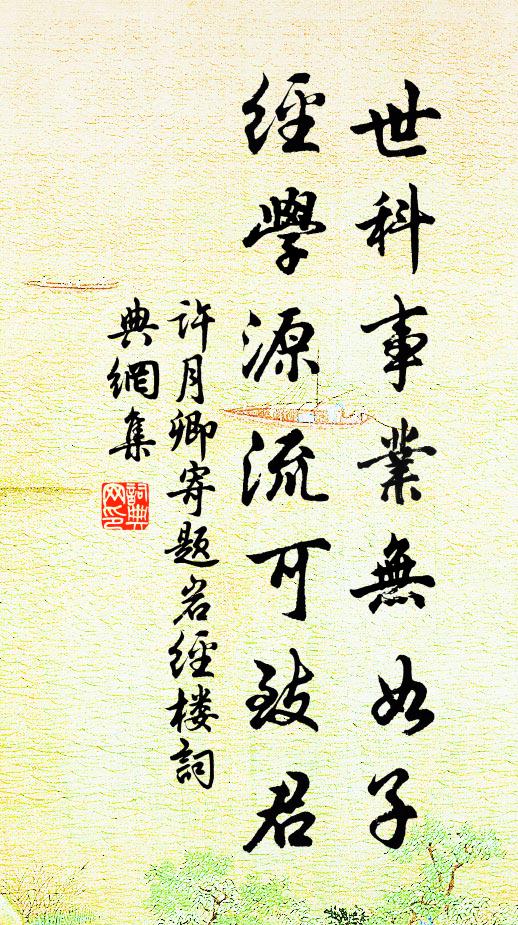 世科事業無如子
經學源流可致君
許月卿寄題岩經楼詞
典網集
詞典网印